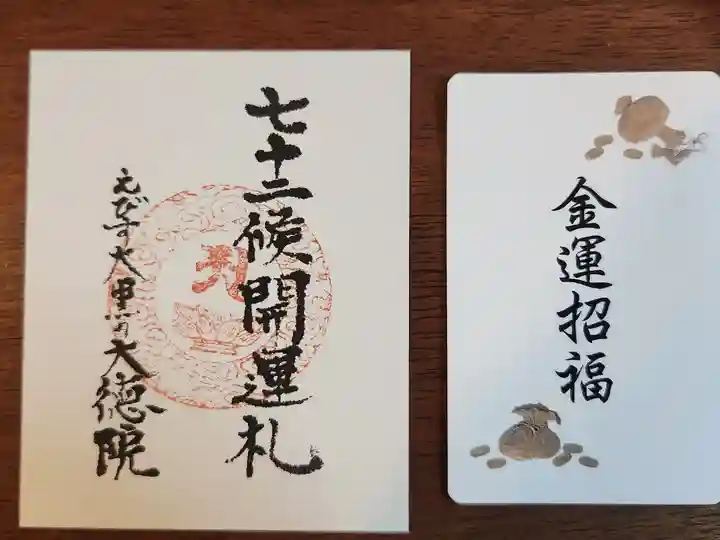 七十二候開運札
えびす大黒の大徳院
金運招福